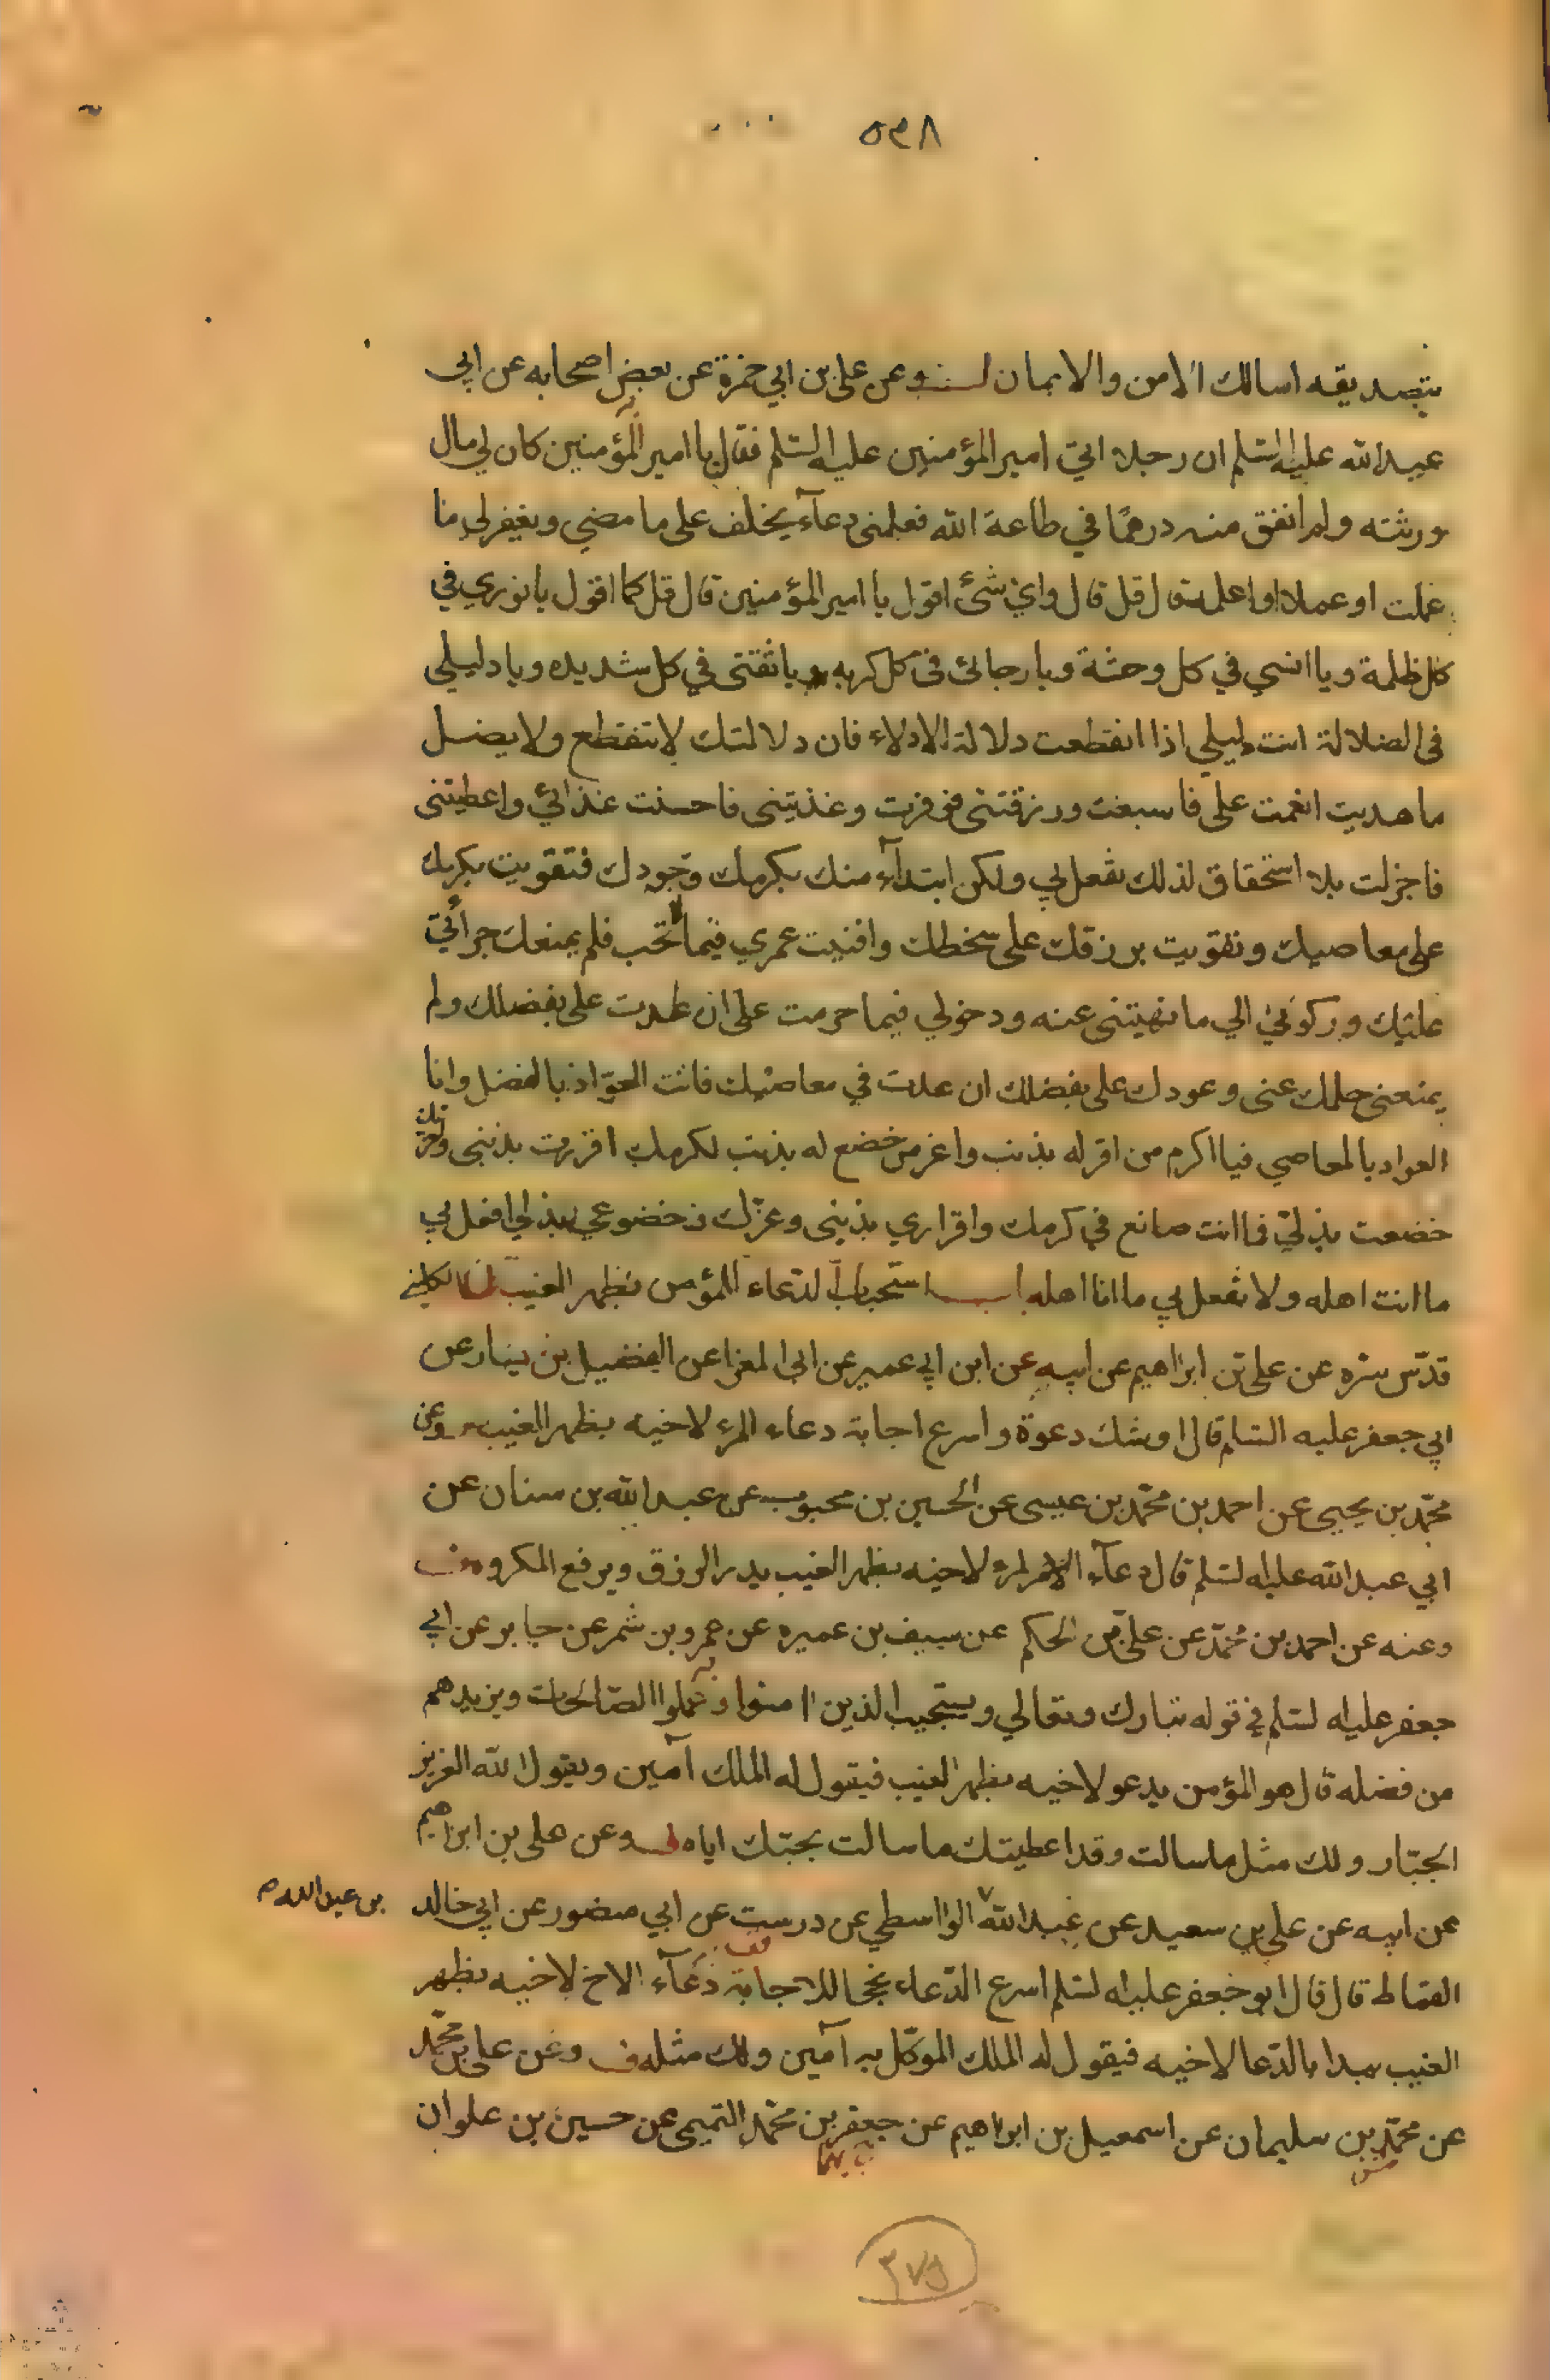 ٥٣٨
بتصديقه اسالك الامن والايمان وعن على بن ابي حمزة عن بعض اصحابه عن ابي
عبد الله عليه السلم ان رجلا اتى امير المؤمنين عليه السلم فقال يا امير المؤمنين كان لي مال
ورثته ولم انفق منه درهمًا في طاعة الله فعلمنى دعآء يخلف على ما مضى ويغفر لي ما
عملت او عملا اعمله قال قل قال واي شئ اقول يا امير المؤمنين قال قل كما اقول يا نوري في
كل ظلمة ويا انسي في كل وحشة ويا رجائ فى كل كربه ويا ثقتى في كل شديده ويا دليلي
فى الضلالة انت دليلي اذا انقطعت دلالة الادلاء فان دلالتك لا تنقطع ولا يضل
ما هديت انعمت على فاسبغت ورزقتنى فوفرت وغذيتنى فاحسنت غذائي واعطيتنى
فاجزلت بلا استحقاق لذلك بفعل لي ولكن ابتدآء منك بكرمك وجودك فتقويت بكرمك
على معاصيك وتقويت برزقك على سخطك وافنيت عمري فيما لا تحب فلم يمنعك جرأتي
عليك وركوبي الي ما نهيتنى عنه ودخولي فيما حرمت على ان عدت على بفضلك ولم
يمنعنى حلمك عنى وعودك على بفضلك ان عدت في معاصيك فانت العوّاد بالفضل وانا
العواد بالمعاصي فيا اكرم من اقر له بذنب واعز من خضع له بذنب لكرمك اقررت بذنبى ولعزتك
خضعت بذلي فما انت صانع في كرمك واقراري بذنبى وعزّك وخضوعي بذلي افعل بي
ما انت اهله ولا تفعل بي ما انا اهله باب استحباب الدعاء للمؤمن بظهر الغيب الكليني
قدّس سرّه عن على بن ابراهيم عن ابيه عن ابن ابي عمير عن ابى المغرا عن الفضيل بن يسار عن
ابي جعفر عليه السلم قال اوشك دعوة واسرع اجابة دعاء المرء لاخيه بظهر الغيب وعن
محمّد بن يحيى عن احمد بن محمّد بن عيسى عن الحسين بن محبوب عن عبد الله بن سنان عن
ابي عبد الله عليه السلم قال دعآء المرء لاخيه بظهر الغيب يدر الرزق ويرفع المكروه
وعنه عن احمد بن محمّد عن علي بن الحكم عن سيف بن عميره عن عمرو بن شمر عن جابر عن ابي
جعفر عليه السلم في قوله تبارك وتعالي ويستجيب الذين امنوا وعملوا الصالحات ويزيدهم
من فضله قال هو المؤمن يدعو لاخيه بظهر الغيب فيقول له الملك آمين ويقول الله العزيز
الجبّار ولك مثل ما سالت وقد اعطيتك ما سالت بحبّك اياه وعن على بن ابراهيم
عن ابيه عن على بن سعيد عن عبيد الله الواسطي عن درست عن ابي منصور عن ابي خالد
بن عبد الله
القماط قال قال ابو جعفر عليه السلم اسرع الدّعاء نجحا للاجابة دعآء الاخ لاخيه بظهر
الغيب يبدا بالدّعا لاخيه فيقول له الملك الموكّل به آمين ولك مثله وعن على بن محمّد
عن محمّد بن سليمان عن اسمعيل بن ابراهيم عن جعفر بن محمّد التميمى عن حسين بن علوان